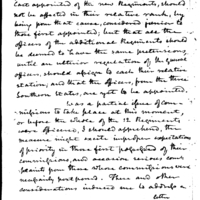 last appointed of the new Regiments, should
not be affected in their relative rank, by
being post that come, considered junior to
those first appointed, but that all the
officers of the additional Regiments should
be deemed to have the same pretensions,
until an ulterior regulation of the general
officers, should assign to each their relative
station; and that the officers, from the three
Southern States, are yet to be appointed.
issue a partial issue of Com-
missions to take place at this moment,
or before the whole of the 12 Regiments
were officered, I should apprehend, the
measure might excite improper expectations
of priority in those first possessed of their
commissions, and occasion serious com-
plaint from those whose commissions were
necessarily postponed. These and other
considerations induced me to address a
letter